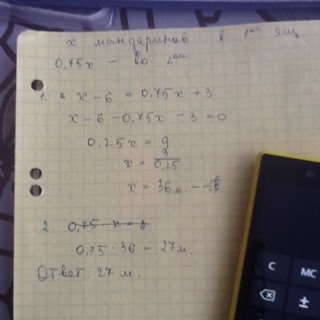 x мандаринов в 1ом ящ.
0,75x – во 2ом
1. x – 6 = 0,75x + 3
x – 6 – 0,75x – 3 = 0
0,25x = 9
x = 9/0,25
x = 36 м. –
2. 0,75 x =
0,75 · 36 = 27 м
Ответ: 27 м.
C MC
±